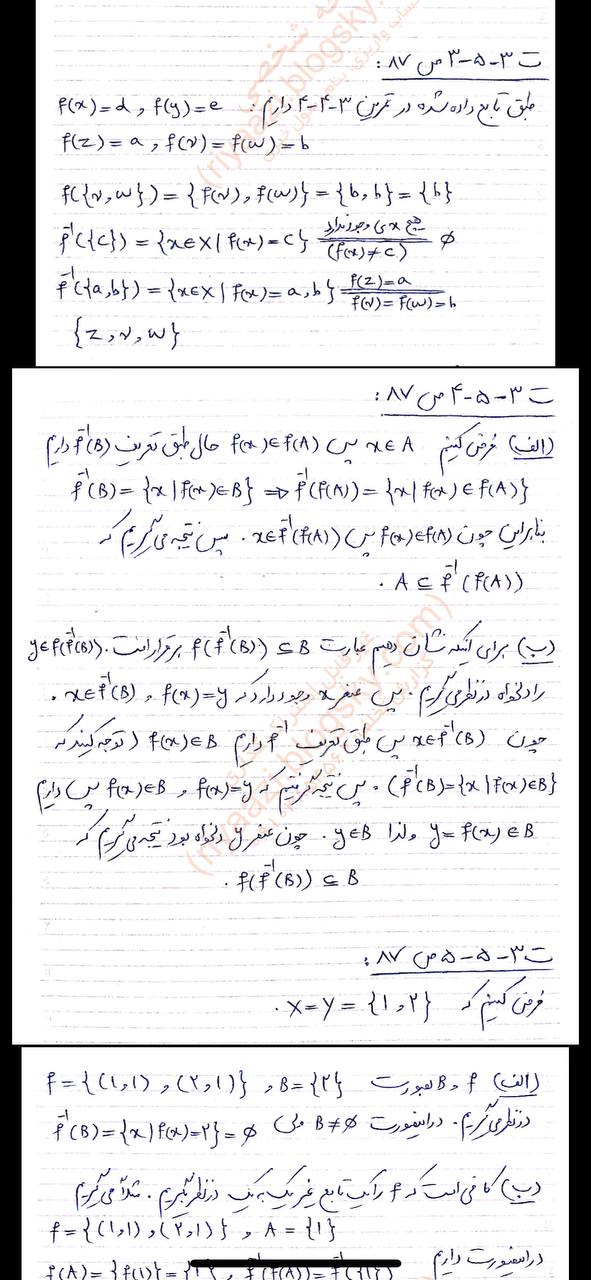 ت ۳-۵-۳ ص ۸۷ :
طبق تابع داده شده در تمرین ۳-۴-۴ داریم : f(x)=d , f(y)=e
f(z)=a , f(v)=f(w)=b
f({v,w})={f(v),f(w)}={b,b}={b}
f⁻¹({c})={x∈X|f(x)=c} هیچ xی وجود ندارد (f(x)≠c) ∅
f⁻¹({a,b})={x∈X|f(x)=a,b} f(z)=a f(v)=f(w)=b
{z,v,w}
ت ۳-۵-۴ ص ۸۷ :
(الف) فرض کنیم x∈A پس f(x)∈f(A) حال طبق تعریف f⁻¹(B) داریم
f⁻¹(B)={x|f(x)∈B} ⇒ f⁻¹(f(A))={x|f(x)∈f(A)}
بنابراین چون f(x)∈f(A) پس x∈f⁻¹(f(A)). پس نتیجه می‌گیریم که
A⊆f⁻¹(f(A)) .
(ب) برای اینکه نشان دهیم عبارت f(f⁻¹(B))⊆B برقرار است. y∈f(f⁻¹(B))
را دلخواه درنظر می‌گیریم. پس عنصر x وجود دارد که f(x)=y و x∈f⁻¹(B) .
چون x∈f⁻¹(B) پس طبق تعریف f⁻¹ داریم f(x)∈B (توجه کنید که
f⁻¹(B)={x|f(x)∈B}) . پس نتیجه گرفتیم که f(x)=y و f(x)∈B پس داریم
y=f(x)∈B ولذا y∈B . چون عنصر y دلخواه بود نتیجه می‌گیریم که
f(f⁻¹(B))⊆B .
ت ۳-۵-۵ ص ۸۷ :
فرض کنیم که X=Y={۱,۲} .
(الف) f و B بصورت f={(۱,۱),(۲,۱)} , B={۲}
درنظر می‌گیریم. دراینصورت B≠∅ ولی f⁻¹(B)={x|f(x)=۲}=∅
(ب) کافی است که f را یک تابع غیر یک به یک درنظر بگیریم. مثلاً می‌گیریم
f={(۱,۱),(۲,۱)} , A={۱}
دراینصورت داریم f(A)={f(۱)}={۱} , f⁻¹(f(A))=f⁻¹({۱})